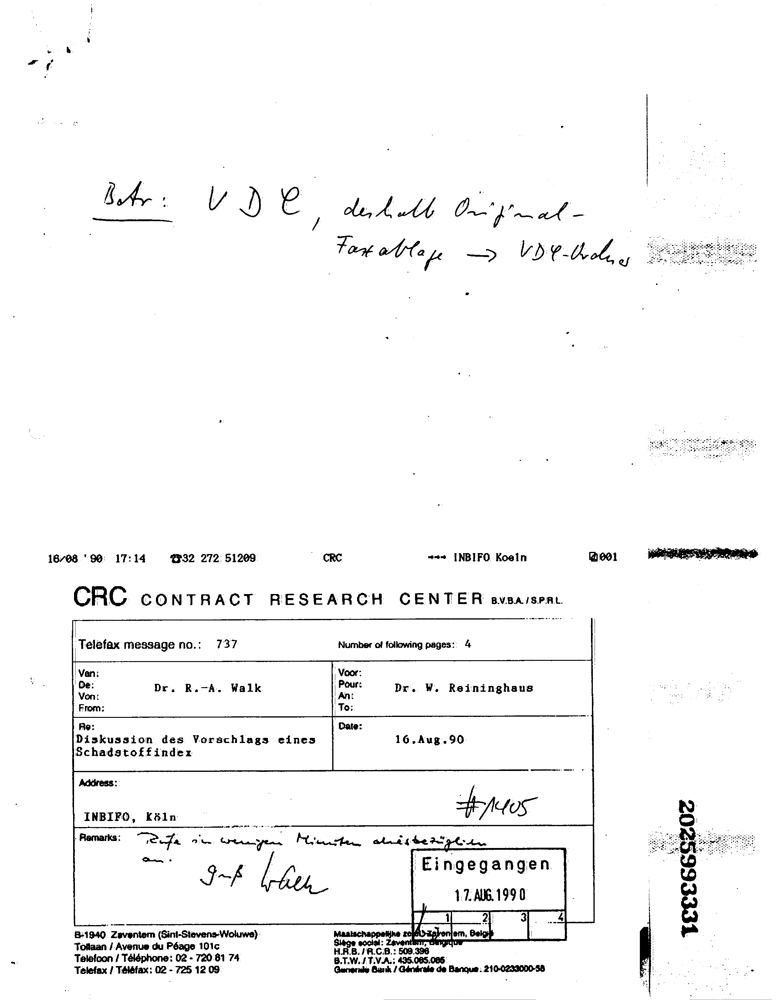 Betr: VDC, deshalb Original-
Faxablage → VDC-Ordner
16/08 '90 17:14 ☎32 272 51209 CRC →→→ INBIFO Koeln 001
CRC CONTRACT RESEARCH CENTER B.V.B.A./S.P.R.L.
Telefax message no.: 737 Number of following pages: 4
Van:
De:
Von:
From:
Dr. R.-A. Walk
Voor:
Pour:
An:
To:
Dr. W. Reininghaus
Re:
Diskussion des Vorschlags eines
Schadstoffindex
Date:
16.Aug.90
Address:
INBIFO, Köln
#1405
Remarks: Rufe in wenigen Minuten diesbezüglich
an.
Gruß Walk
Eingegangen
17. AUG. 1990
1 2 3 4
B-1940 Zaventem (Sint-Stevens-Woluwe)
Tollaan / Avenue du Péage 101c
Telefoon / Téléphone: 02 - 720 81 74
Telefax / Téléfax: 02 - 725 12 09
Maatschappelijke zetel: Zaventem, België
Siège social: Zaventem, Belgique
H.R.B. / R.C.B.: 509.396
B.T.W. / T.V.A.: 435.085.085
Generale Bank / Générale de Banque. 210-0233000-58
2025993331